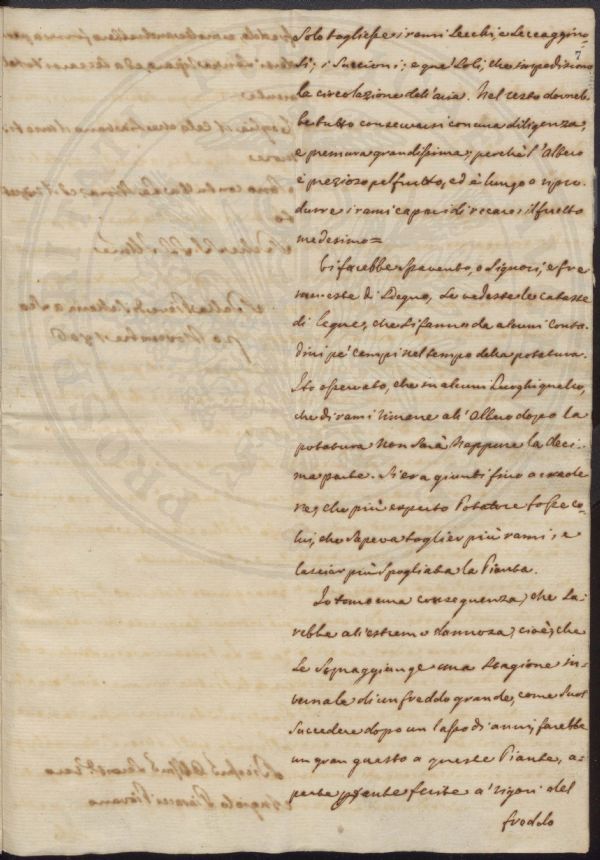 7
solo togliesse i rami secchi, e seccaggino-
si; i succioni; e que' soli, che impediscono
la circolazione dell'aria. Nel resto dovreb-
be tutto conservarsi con una diligenza,
e premura grandissima; perchè l'Albero
è prezioso pel frutto, ed è lungo a ripro-
durre i rami capaci di recare il frutto
medesimo =
Vi farebbe spavento, o Signori, e fre-
mereste di sdegno, se vedeste le cataste
di legne, che si fanno da alcuni conta-
dini pe' campi nel tempo della potatura.
Ho osservato, che in alcuni luoghi quello,
che di rami rimane all'Albero dopo la
potatura non sarà neppure la deci-
ma parte. Si era giunti fino a crede-
re, che più esperto Potatore fosse co-
lui, che sapeva toglier più rami, e
lasciar più spogliata la Pianta.
Io temo una conseguenza, che sa-
rebbe all'estremo dannosa; cioè, che
se sopraggiunge una stagione in-
vernale di un freddo grande, come suol
succedere dopo un lasso di anni, farebbe
un gran guasto a queste Piante, a-
perte, e ferite a' rigori del
freddo